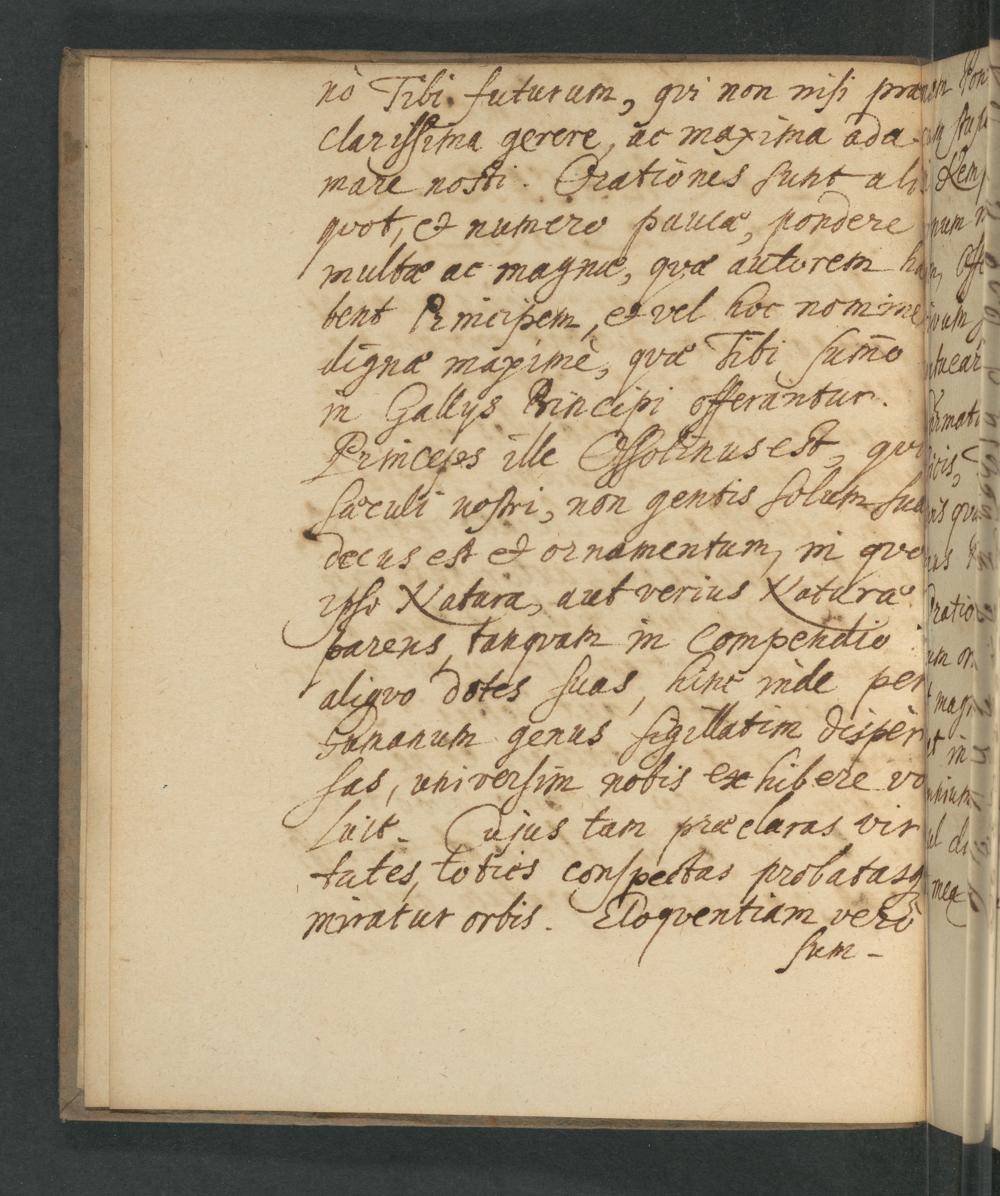 nò Tibi futurum, qvi non nisi præ
clarissima gerere, ac maxima ada-
mare nosti. Orationes sunt ali
qvot, et numero paucæ, pondere
multæ ac magnæ, qvæ autorem ha
bent Principem, et vel hoc nomine
dignæ maximè, qvæ Tibi sum̃o
in Gallys Principi offerantur.
Princeps ille Ossolinus est, qvi
sæculi nostri, non gentis solum suæ
decus est et ornamentum, in qvo
ipso Natura, aut verius Naturæ
parens, tanqvam in compendio
aliqvo dotes suas, hinc inde per
humanum genus sigillatim disper
sas, universim nobis exhibere vo
luit. Cujus tam præclaras vir
tutes, toties conspectas probatasq
miratur orbis. Eloqventiam verò
sum-